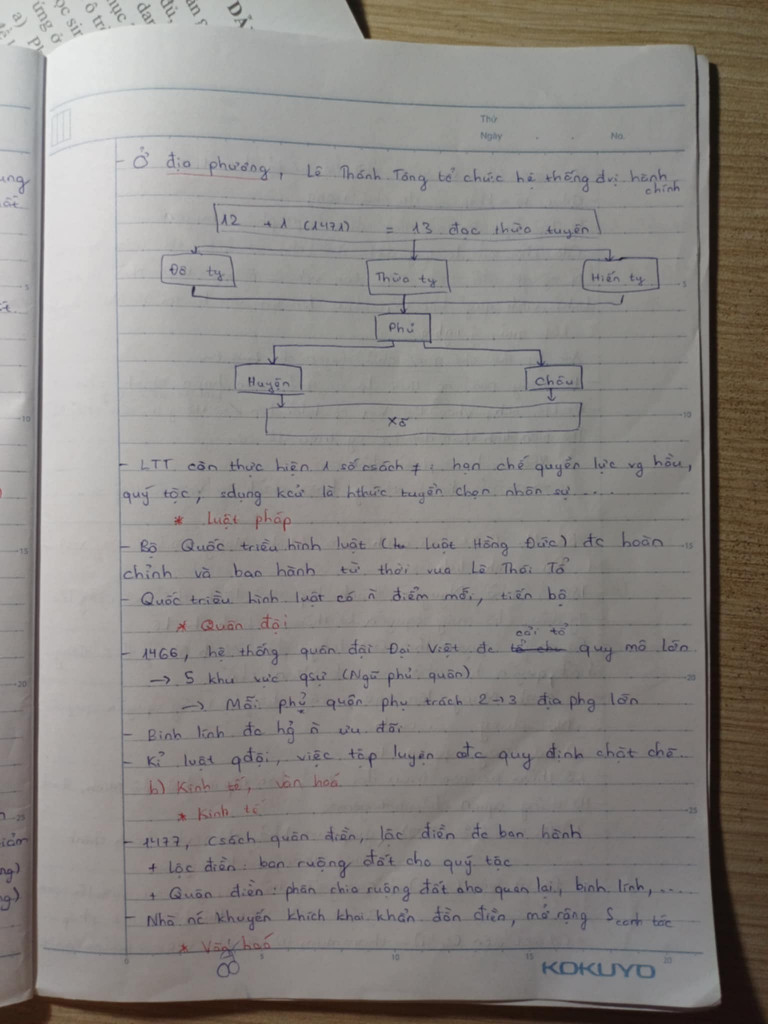 Thứ
Ngày . . No.
- Ở địa phương, Lê Thánh Tông tổ chức hệ thống đvị hành
chính
12 + 1 (1471) = 13 đạo thừa tuyên
Đô ty Thừa ty Hiến ty
Phủ
Huyện Châu
Xã
- LTT còn thực hiện 1 số csách ≠ : hạn chế quyền lực vg hầu,
quý tộc; sdụng kcử là hthức tuyển chọn nhân sự ....
* Luật pháp
- Bộ Quốc triều hình luật (Luật Hồng Đức) đc hoàn
chỉnh và ban hành từ thời vua Lê Thái Tổ
- Quốc triều hình luật có ñ điểm mới, tiến bộ
* Quân đội
cải tổ
- 1466, hệ thống quân đội Đại Việt đc quy mô lớn
→ 5 khu vực qsự (Ngũ phủ quân)
→ Mỗi phủ quân phụ trách 2→3 địa phg lớn
- Binh lính đc hg̉ ñ ưu đãi
- Kỉ luật qđội, việc tập luyện đc quy định chặt chẽ
b) Kinh tế, văn hoá
* Kinh tế
- 1477, csách quân điền, lộc điền đc ban hành
+ Lộc điền : ban ruộng đất cho quý tộc
+ Quân điền : phân chia ruộng đất cho quan lại, binh lính,....
- Nhà nc khuyến khích khai khẩn đồn điền, mở rộng S canh tác
* Văn hoá
KOKUYO